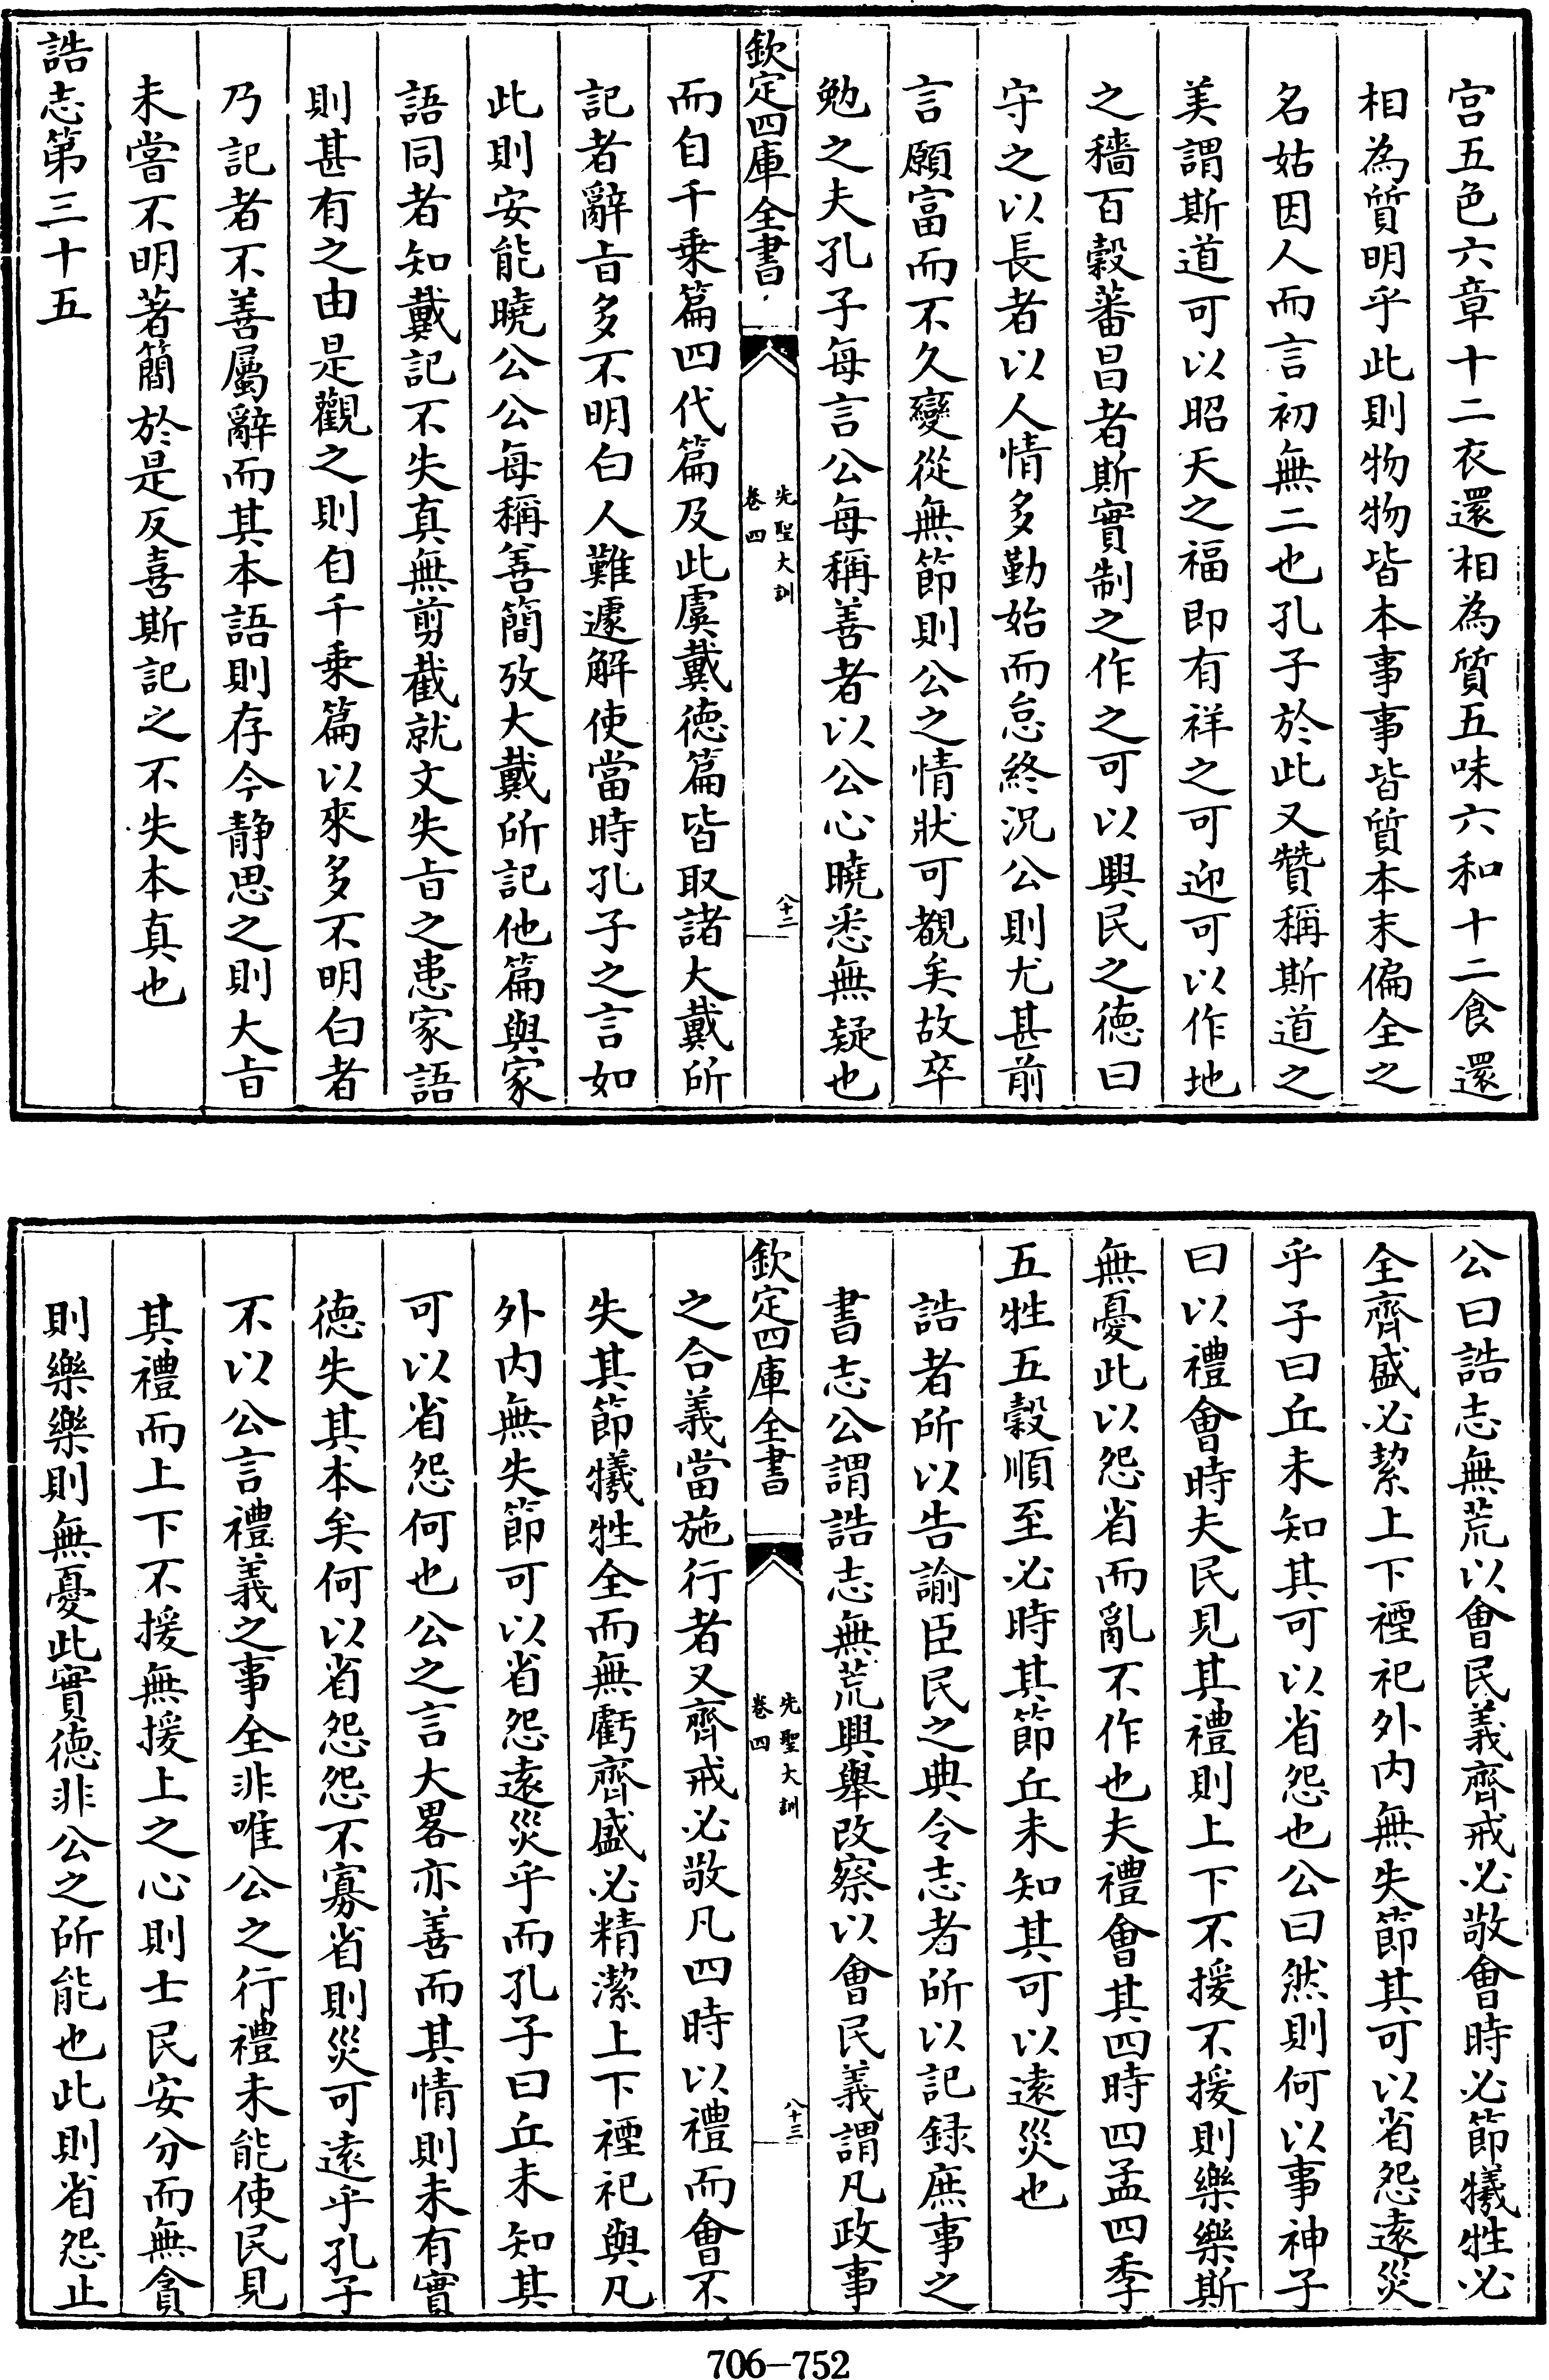 宫五色六章十二衣還相為質五味六和十二食還
相為質明乎此則物物皆本事事皆質本末偏全之
名姑因人而言初無二也孔子於此又贊稱斯道之
美謂斯道可以昭天之福即有祥之可迎可以作地
之穡百穀蕃昌者斯實制之作之可以興民之德曰
守之以長者以人情多勤始而怠終況公則尤甚前
言願富而不久變從無節則公之情狀可覩矣故卒
勉之夫孔子每言公每稱善者以公心曉悉無疑也
欽定四庫全書
先聖大訓
卷四
八十二
而自千乗篇四代篇及此虞戴德篇皆取諸大戴所
記者辭旨多不明白人難遽解使當時孔子之言如
此則安能曉公公每稱善簡攷大戴所記他篇與家
語同者知戴記不失真無剪截就文失旨之患家語
則甚有之由是觀之則自千乗篇以來多不明白者
乃記者不善屬辭而其本語則存今静思之則大旨
未嘗不明著簡於是反喜斯記之不失本真也
誥志第三十五
公曰誥志無荒以會民義齊戒必敬會時必節犧牲必
全齊盛必絜上下禋祀外内無失節其可以省怨遠災
乎子曰丘未知其可以省怨也公曰然則何以事神子
曰以禮會時夫民見其禮則上下不援不援則樂樂斯
無憂此以怨省而亂不作也夫禮會其四時四孟四季
五牲五穀順至必時其節丘未知其可以遠災也
誥者所以告諭臣民之典令志者所以記録庶事之
書志公謂誥志無荒興舉改察以會民義謂凡政事
欽定四庫全書
先聖大訓
卷四
八十三
之合義當施行者又齊戒必敬凡四時以禮而會不
失其節犧牲全而無虧齊盛必精潔上下禋祀與凡
外内無失節可以省怨遠災乎而孔子曰丘未知其
可以省怨何也公之言大畧亦善而其情則未有實
德失其本矣何以省怨怨不寡省則災可遠乎孔子
不以公言禮義之事全非唯公之行禮未能使民見
其禮而上下不援無援上之心則士民安分而無貪
則樂樂則無憂此實德非公之所能也此則省怨止
706-752